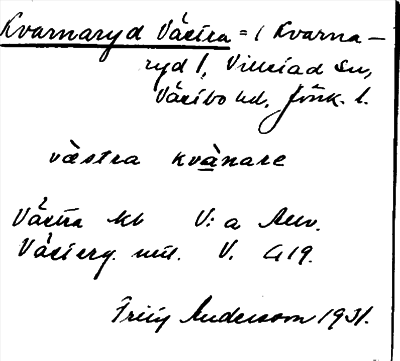 Kvarnaryd Västra = (Kvarna-
ryd 1, Villstad sn,
Västbo hd, Jönk. l.
västra kvànare
Västra kb V: a
Västerg. mil. V. G 19.
Anderson 1931.